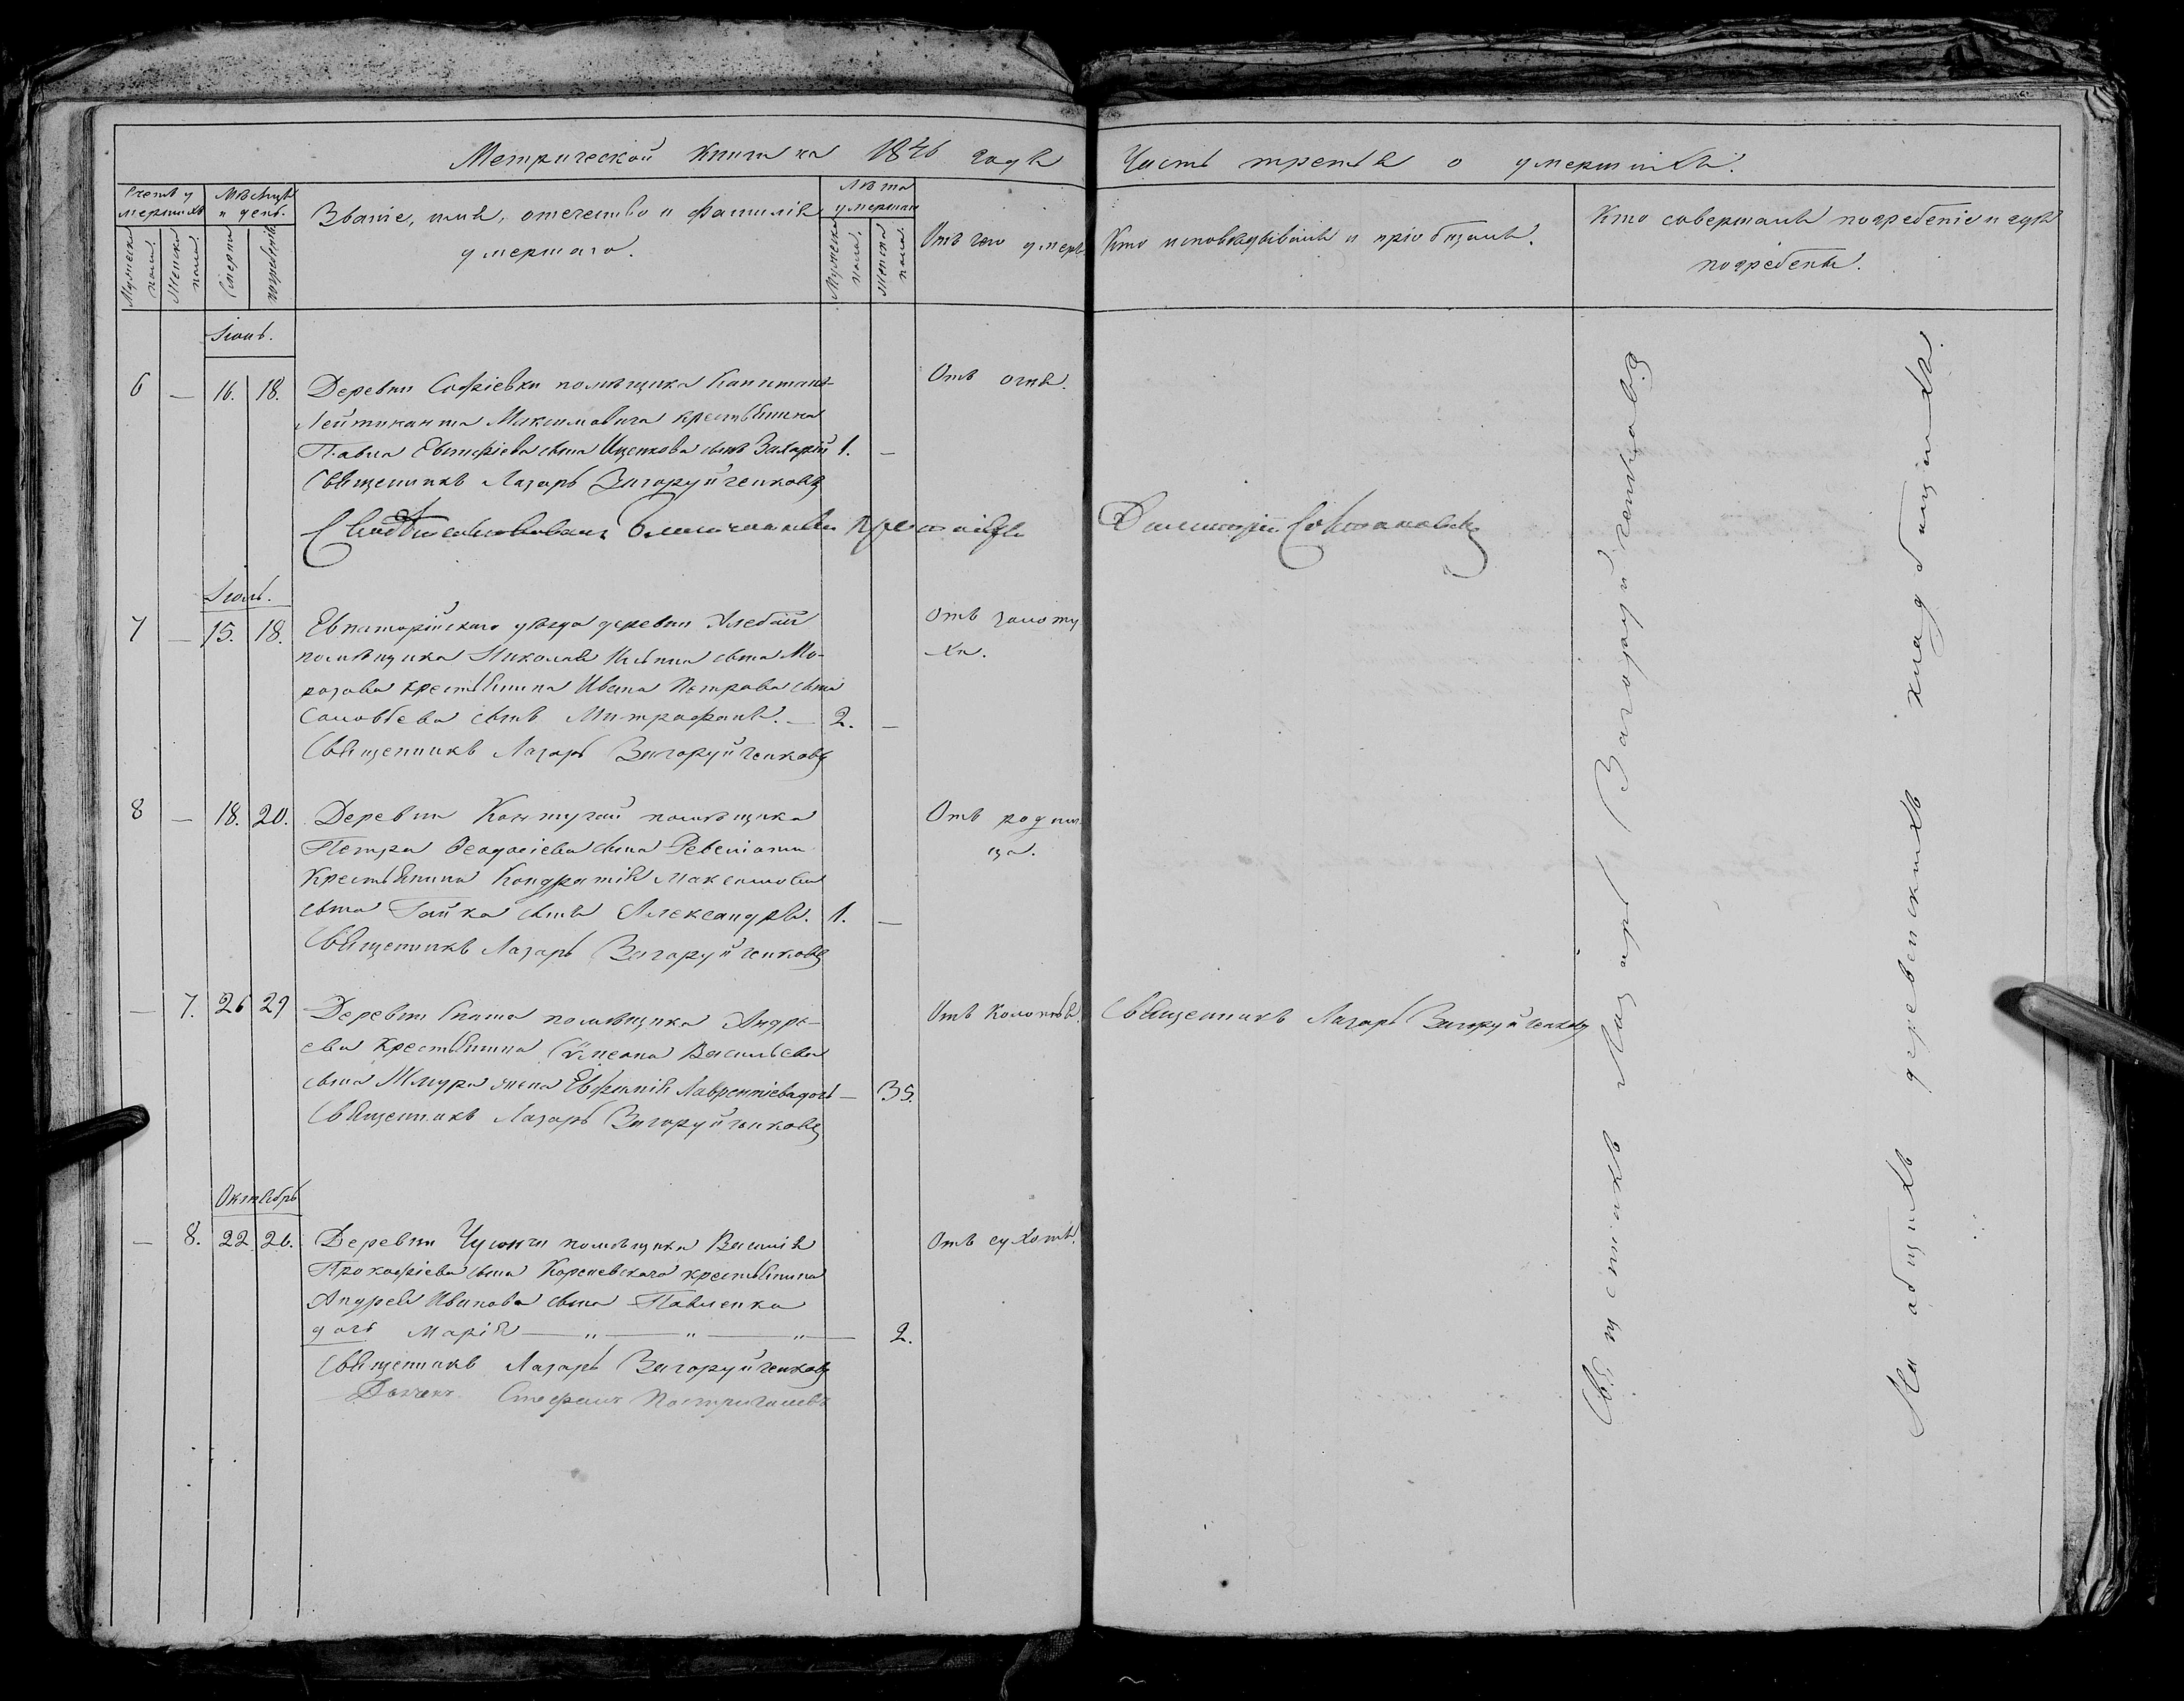 Метрической книги на 1846 годъ
Часть третья о умершихъ.
Счетъ умершихъ
Мѣсяцъ и день.
Званіе, имя, отечество и фамилія
умершаго.
Лѣта умершаго
Отъ чего умеръ.
Кто исповѣдывалъ и пріобщалъ.
Кто совершалъ погребеніе и гдѣ
погребены.
Мужеска пола.
Женска пола.
Смерти
погребенія
Мужеска пола.
Женска пола.
Іюнь.
6 — 16. 18. Деревни Софіевки помѣщика Капитанъ-
Лейтинанта Максимовича крестьянина
Павла сына Ищенкова сынъ Захарій 1. —
Отъ огня.
Священникъ Лазарь Загоруйченковъ
Свидѣтельствовалъ
Димитрій
Іюль.
7 — 15. 18. Евпаторійскаго уѣзда деревни
помѣщика Николая Ильина сына Мо-
розова крестьянина Ивана Петрова сына
Соловьева сынъ Митрофанъ. — 2. —
Отъ золоту
хи.
Священникъ Лазарь Загоруйченковъ
8 — 18. 20. Деревни Контугай помѣщика
Петра Феодосіева сына Ревеліоти
Крестьянина Кондратія Максимова
сына Гайка сынъ Александръ. 1. —
Отъ родим
ца.
Священникъ Лазарь Загоруйченковъ
— 7. 26 29 Деревни помѣщика Андре-
ева крестьянина Сѵмеона Васильева
сына Жмура жена Евфимія Лаврентіева дочь — 35.
Отъ колотья.
Священникъ Лазарь Загоруйченковъ
Священникъ Лазарь Загоруйченковъ
Октябрь
— 8. 22. 26. Деревни помѣщика Василія
Прокофіева сына Кореневскаго крестьянина
Андрея Иванова сына Павленка
дочь Марія — „ — „ — „ — 2.
Отъ сухоты.
Священникъ Лазарь Загоруйченковъ
Дьячекъ Стефанъ
Священникъ Лазарь Загоруйченковъ
На общихъ деревенскихъ кладбищахъ.